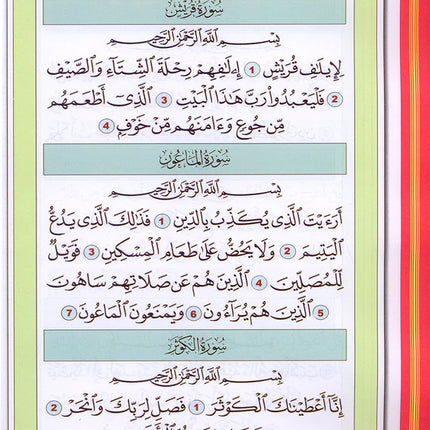 سُورَةُ قُرَيْشٍ
بِسْمِ اللَّهِ الرَّحْمَٰنِ الرَّحِيمِ
لِإِيلَٰفِ قُرَيْشٍ 1 إِۦلَٰفِهِمْ رِحْلَةَ الشِّتَاءِ وَالصَّيْفِ
2 فَلْيَعْبُدُوا رَبَّ هَٰذَا الْبَيْتِ 3 الَّذِي أَطْعَمَهُم
مِّن جُوعٍ وَءَامَنَهُم مِّنْ خَوْفٍ 4
سُورَةُ الْمَاعُونَ
بِسْمِ اللَّهِ الرَّحْمَٰنِ الرَّحِيمِ
أَرَءَيْتَ الَّذِي يُكَذِّبُ بِالدِّينِ 1 فَذَٰلِكَ الَّذِي يَدُعُّ
الْيَتِيمَ 2 وَلَا يَحُضُّ عَلَىٰ طَعَامِ الْمِسْكِينِ 3 فَوَيْلٌ
لِّلْمُصَلِّينَ 4 الَّذِينَ هُمْ عَن صَلَاتِهِمْ سَاهُونَ
5 الَّذِينَ هُمْ يُرَاءُونَ 6 وَيَمْنَعُونَ الْمَاعُونَ 7
سُورَةُ الْكَوْثَرِ
بِسْمِ اللَّهِ الرَّحْمَٰنِ الرَّحِيمِ
إِنَّا أَعْطَيْنَاكَ الْكَوْثَرَ 1 فَصَلِّ لِرَبِّكَ وَانْحَرْ 2